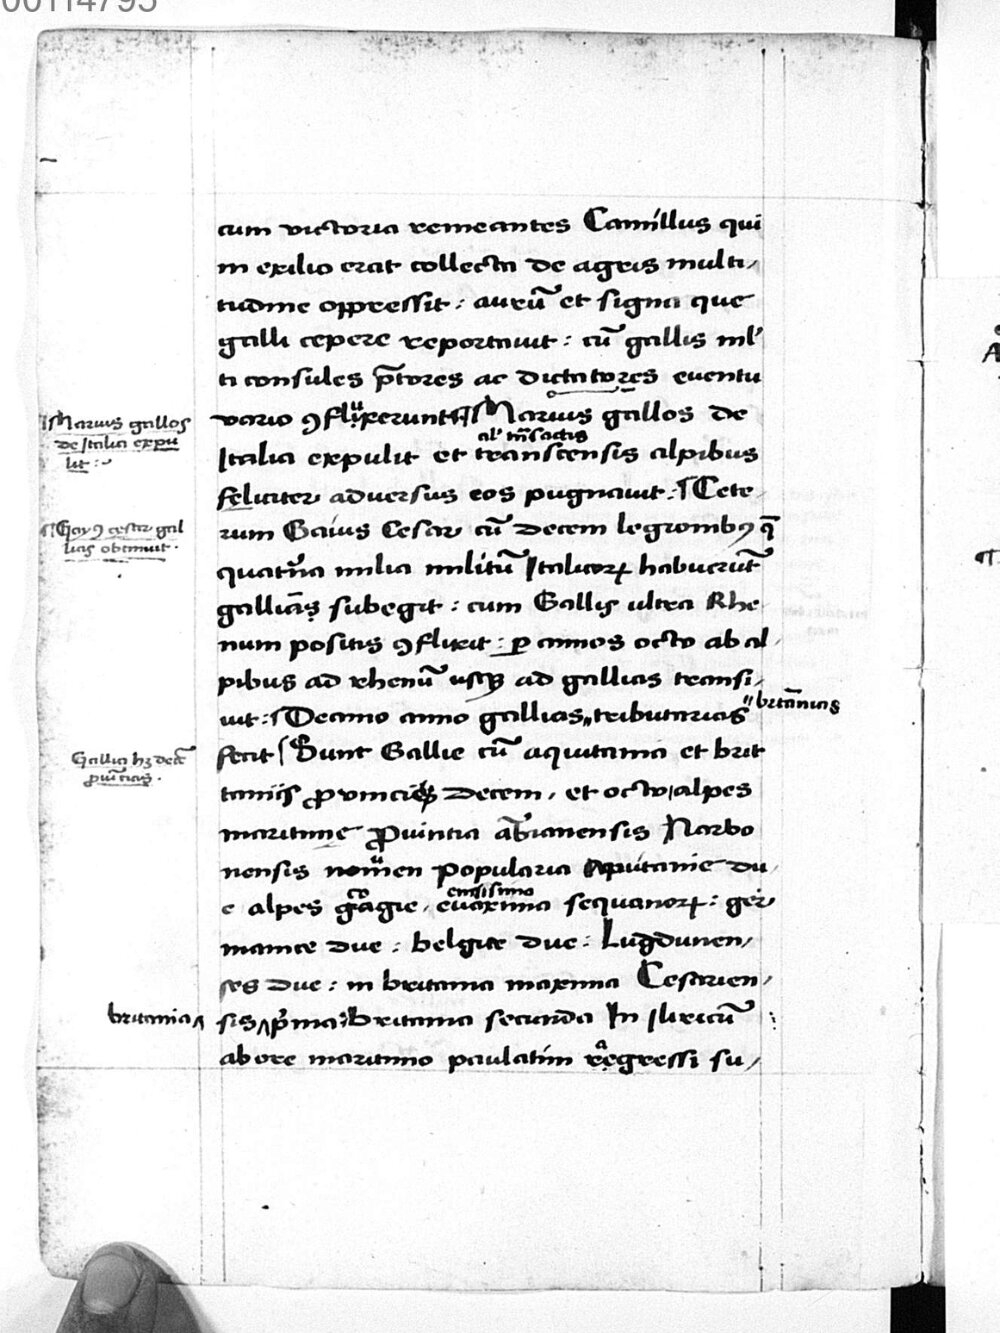 00114795
cum victoria remeantes Camillus qui
in exilio erat collecta de agris multi
tudine oppressit : aurū et signa que
galli cepere reportauit : cū gallis ml'
ti consules p̄tores ac dictatores euentu
vario ꝯflixerunt Marius gallos de
al' trāsactis
Italia expulit et transcensis alpibus
feliciter aduersus eos pugnauit : Cete
rum Gaius Cesar cū decem legionibꝰ q̄
quat'na milia militū Italicoꝝ habuerūt
gallias subegit : cum Gallis ultra Rhe
num positis ꝯflixit : ꝑ annos octo ab al
pibus ad rhenū usqꝫ ad gallias transi
uit : Decimo anno gallias tributarias britānias
fecit Sunt Gallie cū aquitania et brit
taniis ꝓvincies decem , et octo alpes
maritime ꝓuintia Narbo
nensis popularia Aquitanie du
e alpes
maxima sequanoꝝ : ger
manice due : belgice due : Lugdunen
ses due : in britania maxima Cesarien
sis p̄ma britania secunda In Iliricū
ab ore maritimo paulatim regressi su
Marius gallos
de Italia expu
lit :
Gayꝰ cesar gal
lias obtinuit .
Gallia hꝫ decē
ꝓuīcias .
britania